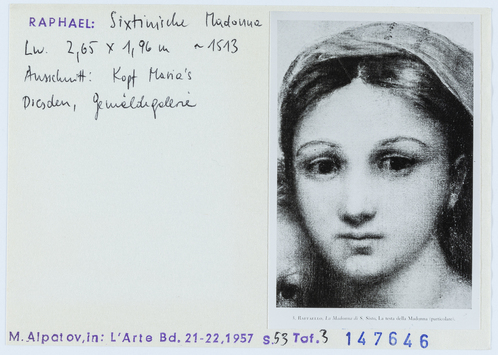 RAPHAEL: Sixtinische Madonna
Lw. 2,65 x 1,96 m ~ 1513
Ausschnitt: Kopf Maria's
Dresden, Gemäldegalerie
3. Raffaello: La Madonna di S. Sisto. La testa della Madonna (particolare).
M. Alpatov, in: L'Arte Bd. 21-22, 1957 S. 53 Taf. 3 147646